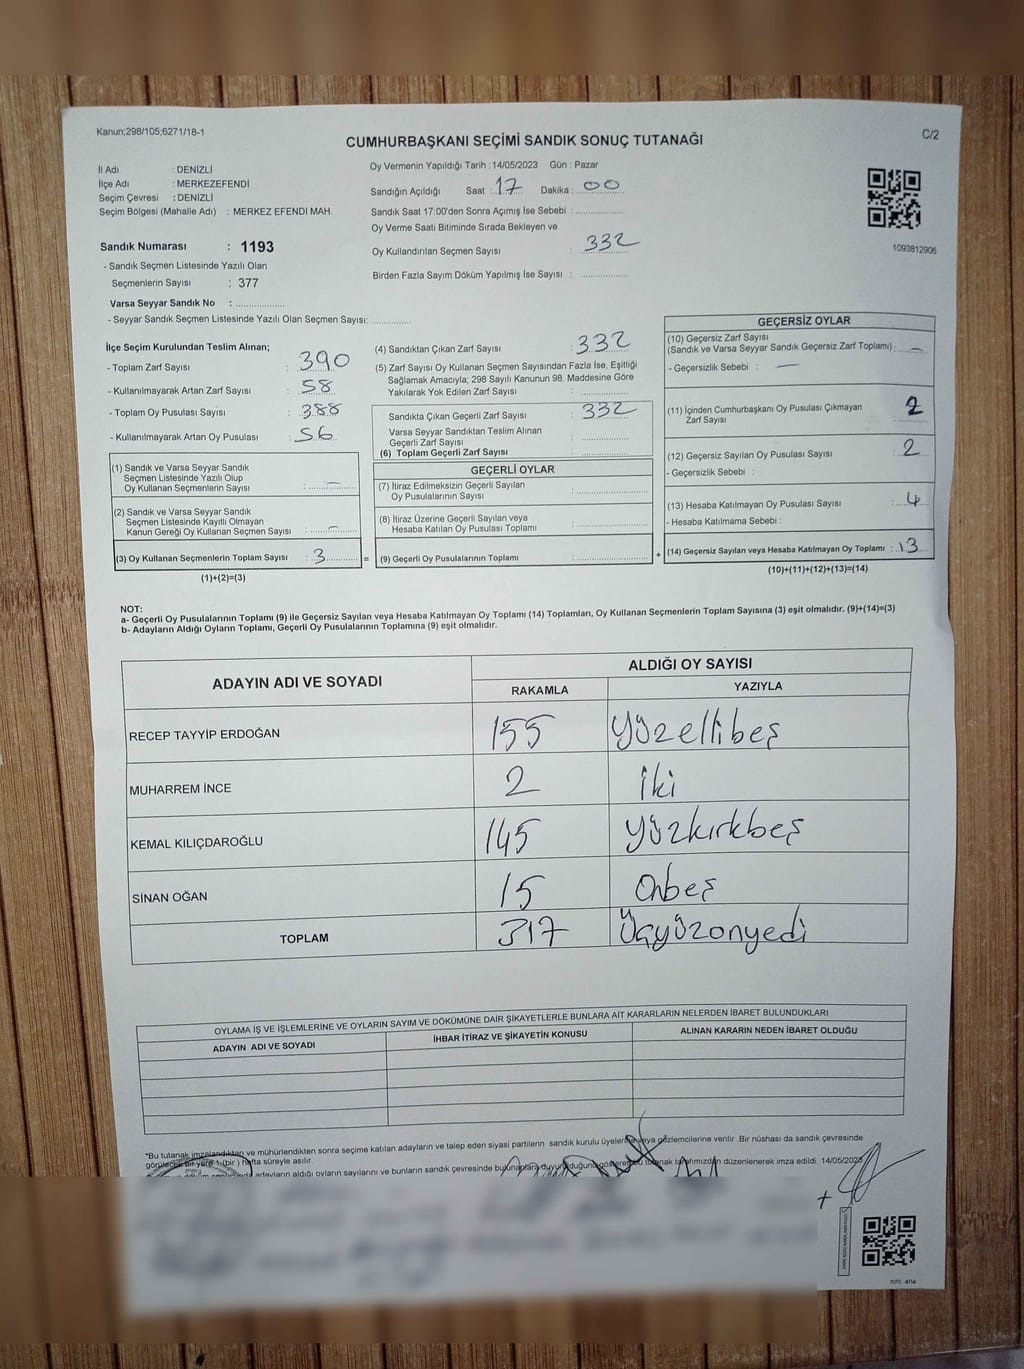 Kanun;298/105;6271/18-1
C/2
CUMHURBAŞKANI SEÇİMİ SANDIK SONUÇ TUTANAĞI
İl Adı : DENİZLİ
İlçe Adı : MERKEZEFENDİ
Seçim Çevresi : DENİZLİ
Seçim Bölgesi (Mahalle Adı) : MERKEZ EFENDİ MAH.
Oy Vermenin Yapıldığı Tarih : 14/05/2023 Gün : Pazar
Sandığın Açıldığı Saat : 17 Dakika : 00
Sandık Saat 17:00'den Sonra Açımış İse Sebebi :
Oy Verme Saati Bitiminde Sırada Bekleyen ve
Oy Kullandırılan Seçmen Sayısı : 332
Birden Fazla Sayım Döküm Yapılmış İse Sayısı :
1093812906
Sandık Numarası : 1193
- Sandık Seçmen Listesinde Yazılı Olan
Seçmenlerin Sayısı : 377
Varsa Seyyar Sandık No :
- Seyyar Sandık Seçmen Listesinde Yazılı Olan Seçmen Sayısı:
İlçe Seçim Kurulundan Teslim Alınan;
- Toplam Zarf Sayısı : 390
- Kullanılmayarak Artan Zarf Sayısı : 58
- Toplam Oy Pusulası Sayısı : 388
- Kullanılmayarak Artan Oy Pusulası : 56
(1) Sandık ve Varsa Seyyar Sandık
Seçmen Listesinde Yazılı Olup
Oy Kullanan Seçmenlerin Sayısı : –
(2) Sandık ve Varsa Seyyar Sandık
Seçmen Listesinde Kayıtlı Olmayan
Kanun Gereği Oy Kullanan Seçmen Sayısı : –
(3) Oy Kullanan Seçmenlerin Toplam Sayısı : 3
(1)+(2)=(3)
(4) Sandıktan Çıkan Zarf Sayısı : 332
(5) Zarf Sayısı Oy Kullanan Seçmen Sayısından Fazla İse, Eşitliği
Sağlamak Amacıyla; 298 Sayılı Kanunun 98. Maddesine Göre
Yakılarak Yok Edilen Zarf Sayısı :
Sandıkta Çıkan Geçerli Zarf Sayısı : 332
Varsa Seyyar Sandıktan Teslim Alınan
Geçerli Zarf Sayısı :
(6) Toplam Geçerli Zarf Sayısı :
GEÇERLİ OYLAR
(7) İtiraz Edilmeksizin Geçerli Sayılan
Oy Pusulalarının Sayısı :
(8) İtiraz Üzerine Geçerli Sayılan veya
Hesaba Katılan Oy Pusulası Toplamı :
= (9) Geçerli Oy Pusulalarının Toplamı :
GEÇERSİZ OYLAR
(10) Geçersiz Zarf Sayısı
(Sandık ve Varsa Seyyar Sandık Geçersiz Zarf Toplamı) : –
- Geçersizlik Sebebi : –
(11) İçinden Cumhurbaşkanı Oy Pusulası Çıkmayan
Zarf Sayısı : 2
(12) Geçersiz Sayılan Oy Pusulası Sayısı : 2
- Geçersizlik Sebebi :
(13) Hesaba Katılmayan Oy Pusulası Sayısı : 4
- Hesaba Katılmama Sebebi :
+ (14) Geçersiz Sayılan veya Hesaba Katılmayan Oy Toplamı : 13
(10)+(11)+(12)+(13)=(14)
NOT:
a- Geçerli Oy Pusulalarının Toplamı (9) ile Geçersiz Sayılan veya Hesaba Katılmayan Oy Toplamı (14) Toplamları, Oy Kullanan Seçmenlerin Toplam Sayısına (3) eşit olmalıdır. (9)+(14)=(3)
b- Adayların Aldığı Oyların Toplamı, Geçerli Oy Pusulalarının Toplamına (9) eşit olmalıdır.
ADAYIN ADI VE SOYADI
ALDIĞI OY SAYISI
RAKAMLA YAZIYLA
RECEP TAYYİP ERDOĞAN 155 Yüzellibeş
MUHARREM İNCE 2 İki
KEMAL KILIÇDAROĞLU 145 Yüzkırkbeş
SİNAN OĞAN 15 Onbeş
TOPLAM 317 Üçyüzonyedi
OYLAMA İŞ VE İŞLEMLERİNE VE OYLARIN SAYIM VE DÖKÜMÜNE DAİR ŞİKAYETLERLE BUNLARA AİT KARARLARIN NELERDEN İBARET BULUNDUKLARI
ADAYIN ADI VE SOYADI İHBAR İTİRAZ VE ŞİKAYETİN KONUSU ALINAN KARARIN NEDEN İBARET OLDUĞU
"Bu tutanak imzalandıktan ve mühürlendikten sonra seçime katılan adayların ve talep eden siyasi partilerin sandık kurulu üyelerine veya gözlemcilerine verilir. Bir nüshası da sandık çevresinde
görülecek bir yere 1 (bir) hafta süreyle asılır.
adayların aldığı oyların sayılarını ve bunların sandık çevresinde tutanak tarafımızdan düzenlenerek imza edildi. 14/05/2023